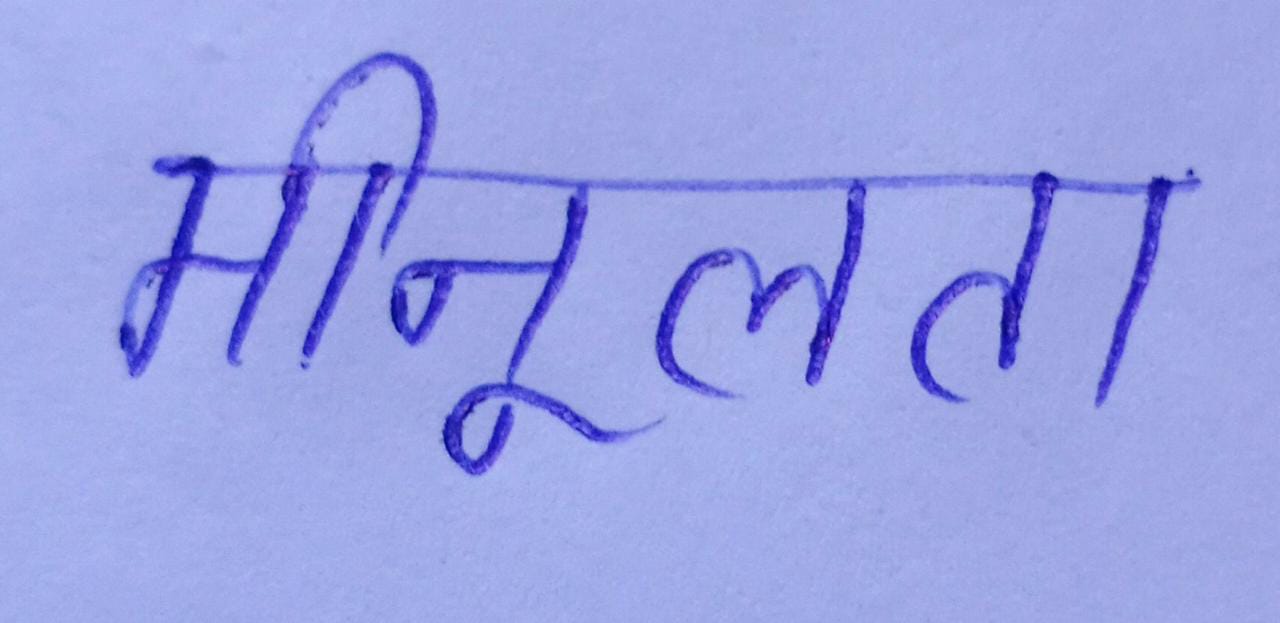 मीनूलता